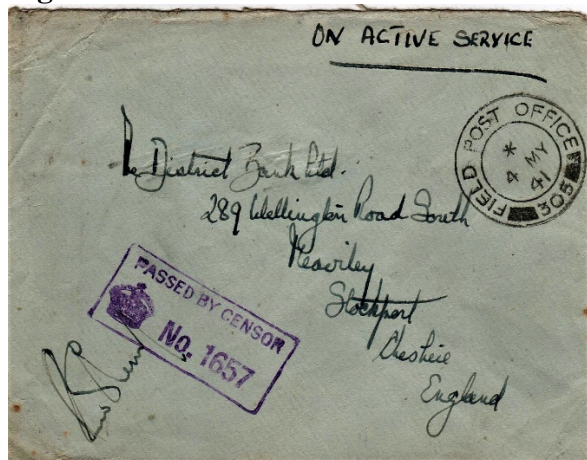 ON ACTIVE SERVICE
FIELD POST OFFICE
305
*
4 MY
41
District Bank Ltd.
289 Wellington Road South
Heaviley
Stockport
Cheshire
England
PASSED BY CENSOR
No. 1657